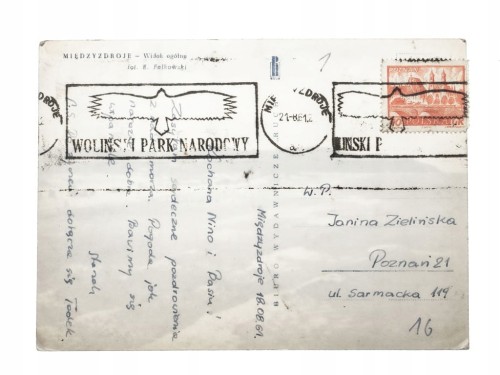 MIĘDZYZDROJE – Widok ogólny
fot. K. Pałkowski
1
WOLIŃSKI PARK NARODOWY
MIĘDZYZDROJE
21-8
a
BIURO WYDAWNICZE RUCH
Międzyzdroje 18.08.61.
Kochana Nino i Basiu!
Zasyłam serdeczne pozdrowienia
z nad morza. Pogoda jak
na razie dobra. Bawimy się
Staneli
dołącza się Tadek.
W.P.
Janina Zielińska
Poznań 21
ul. Sarmacka 119
16